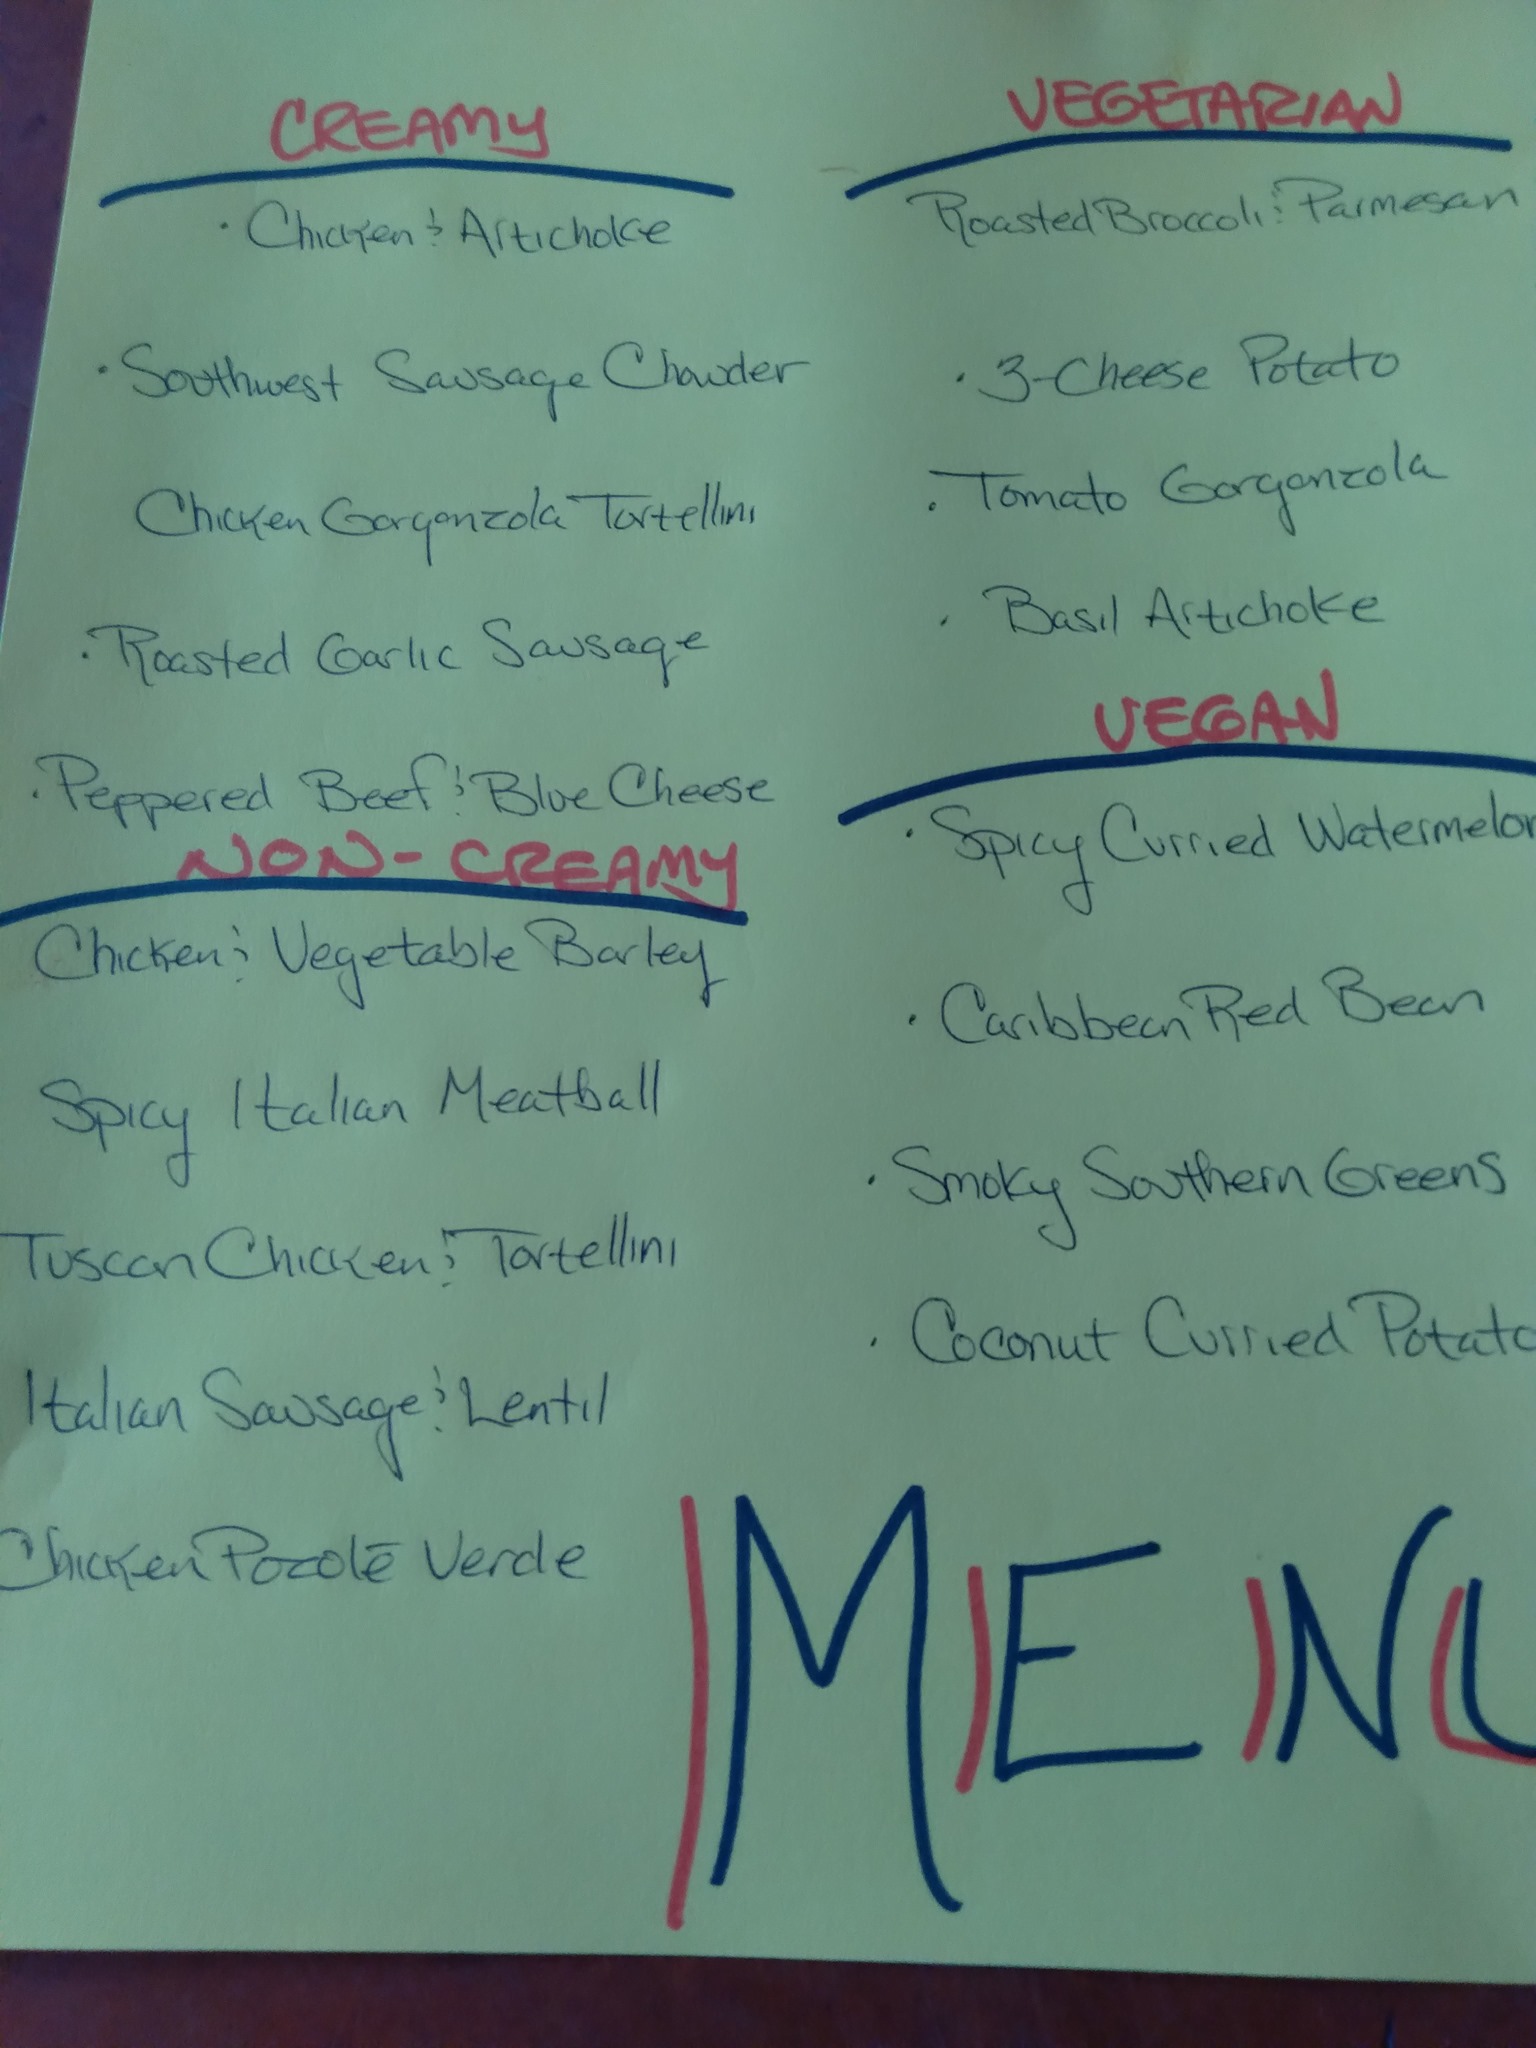 CREAMY
· Chicken & Artichoke
· Southwest Sausage Chowder
Chicken Gorgonzola Tortellini
· Roasted Garlic Sausage
· Peppered Beef & Blue Cheese
NON-CREAMY
Chicken & Vegetable Barley
Spicy Italian Meatball
Tuscan Chicken & Tortellini
Italian Sausage & Lentil
Chicken Pozolē Verde
VEGETARIAN
Roasted Broccoli & Parmesan
· 3-Cheese Potato
· Tomato Gorgonzola
· Basil Artichoke
VEGAN
· Spicy Curried Watermelon
· Caribbean Red Bean
· Smoky Southern Greens
· Coconut Curried Potato
MENU